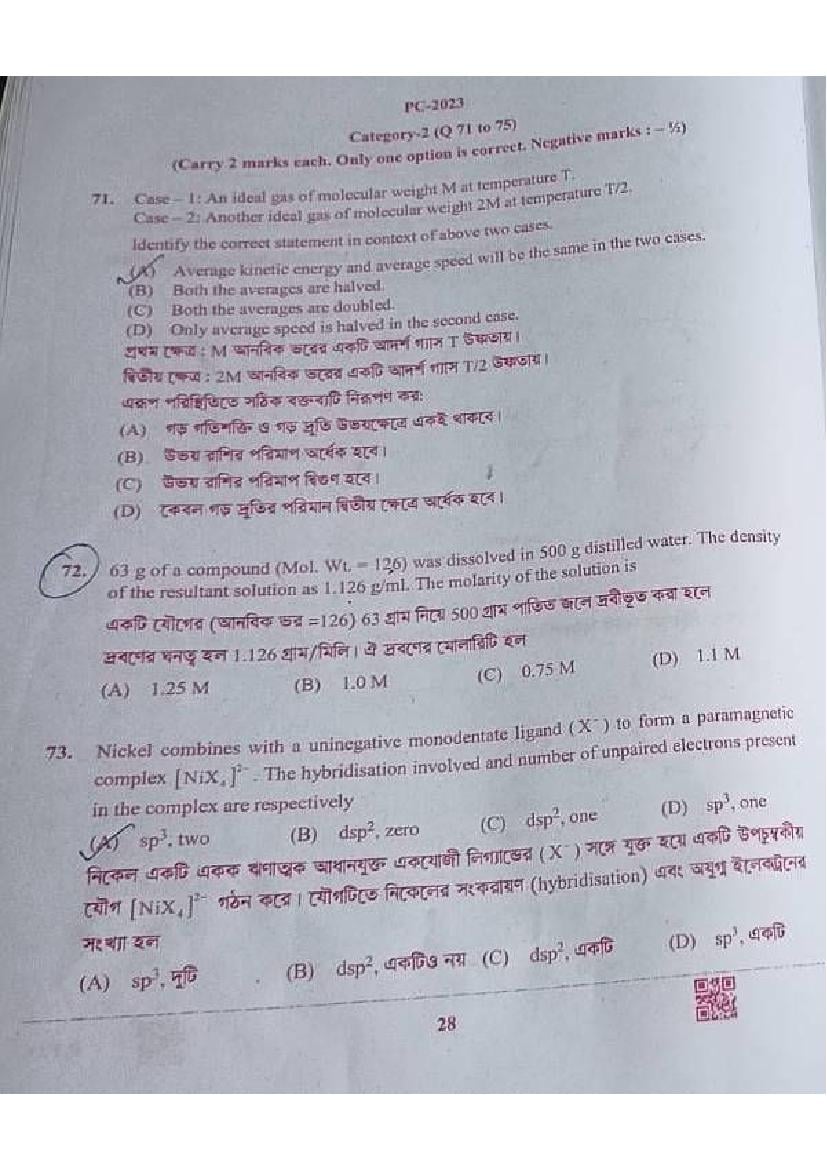 PC-2023
Category-2 (Q 71 to 75)
(Carry 2 marks each. Only one option is correct. Negative marks : – ½)
71. Case – 1: An ideal gas of molecular weight M at temperature T.
Case – 2: Another ideal gas of molecular weight 2M at temperature T/2.
Identify the correct statement in context of above two cases.
(A) Average kinetic energy and average speed will be the same in the two cases.
(B) Both the averages are halved.
(C) Both the averages are doubled.
(D) Only average speed is halved in the second case.
প্রথম ক্ষেত্র : M আনবিক ভরের একটি আদর্শ গ্যাস T উষ্ণতায়।
দ্বিতীয় ক্ষেত্র : 2M আনবিক ভরের একটি আদর্শ গ্যাস T/2 উষ্ণতায়।
এরূপ পরিস্থিতিতে সঠিক বক্তব্যটি নিরূপণ কর:
(A) গড় গতিশক্তি ও গড় দ্রুতি উভয়ক্ষেত্রে একই থাকবে।
(B) উভয় রাশির পরিমাপ অর্ধেক হবে।
(C) উভয় রাশির পরিমাপ দ্বিগুণ হবে।
(D) কেবল গড় দ্রুতির পরিমান দ্বিতীয় ক্ষেত্রে অর্ধেক হবে।
72. 63 g of a compound (Mol. Wt. = 126) was dissolved in 500 g distilled water. The density
of the resultant solution as 1.126 g/ml. The molarity of the solution is
একটি যৌগের (আনবিক ভর =126) 63 গ্রাম নিয়ে 500 গ্রাম পাতিত জলে দ্রবীভূত করা হলে
দ্রবণের ঘনত্ব হল 1.126 গ্রাম/মিলি। ঐ দ্রবণের মোলারিটি হল
(A) 1.25 M (B) 1.0 M (C) 0.75 M (D) 1.1 M
73. Nickel combines with a uninegative monodentate ligand (X⁻) to form a paramagnetic
complex [NiX₄]²⁻. The hybridisation involved and number of unpaired electrons present
in the complex are respectively
(A) sp³, two (B) dsp², zero (C) dsp², one (D) sp³, one
নিকেল একটি একক ঋণাত্মক আধানযুক্ত একযোজী লিগ্যান্ডের (X⁻) সঙ্গে যুক্ত হয়ে একটি উপচুম্বকীয়
যৌগ [NiX₄]²⁻ গঠন করে। যৌগটিতে নিকেলের সংকরায়ণ (hybridisation) এবং অযুগ্ম ইলেকট্রনের
সংখ্যা হল
(A) sp³, দুটি (B) dsp², একটিও নয় (C) dsp², একটি (D) sp³, একটি
28